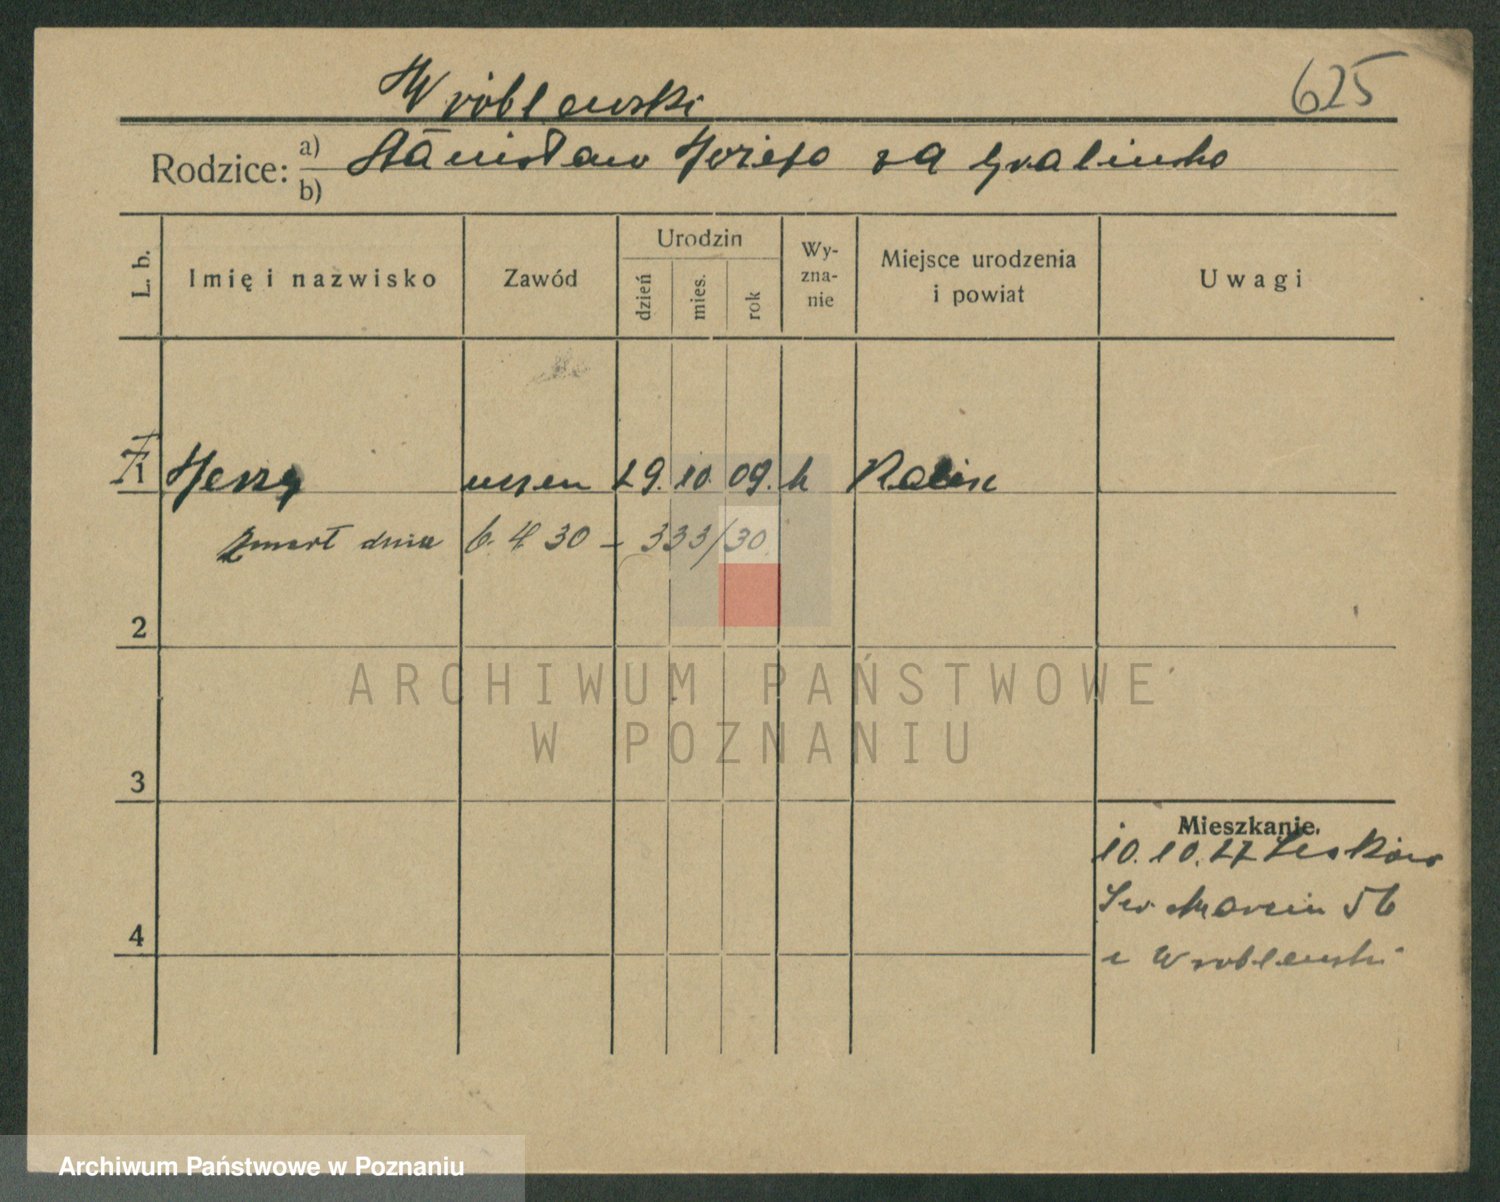 Wróblewski
625
Rodzice: a) Stanisław Józefa
b)
L. b.
Imię i nazwisko
Zawód
Urodzin
dzień
mies.
rok
Wy-
zna-
nie
Miejsce urodzenia
i powiat
Uwagi
1 Jerzy uczen 29. 10. 09. k
Zmarł dnia 6. 4 30 – 333/30
2
3
4
Mieszkanie.
10.10.27
Św. Marcin 56
Wroblewski
ARCHIWUM PAŃSTWOWE
W POZNANIU
Archiwum Państwowe w Poznaniu